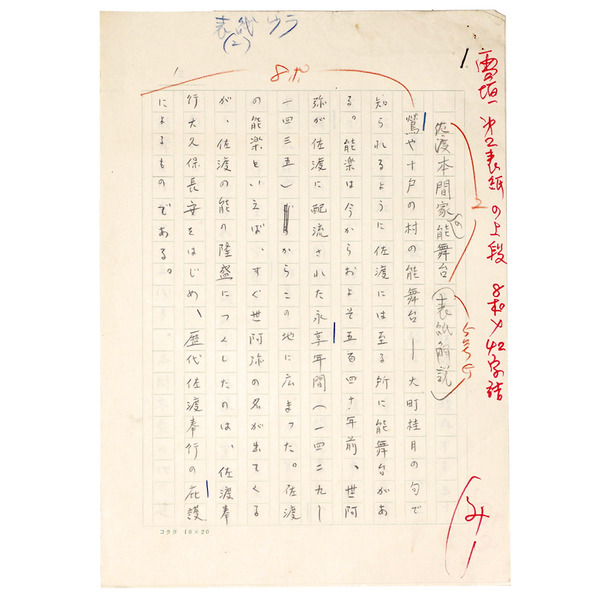 表紙ウラ
(2)
8ポ
雪垣一 オ2表紙の上段 8ポ×42字詰
2
5号G
佐渡本間家の能舞台(表紙解説)
鶯や十戸の村の能舞台ー大町桂月の句で
知られるように佐渡には至る所に能舞台があ
る。能楽は今からおよそ五百四十年前、世阿
弥が佐渡に配流された永享年間(一四二九ー
一四三五)からこの地に広まった。佐渡
の能楽といえば、すぐ世阿弥の名が出てくる
が、佐渡の能の隆盛につくしたのは、佐渡奉
行大久保長安をはじめ、歴代佐渡奉行の庇護
によるものである。
コクヨ 10×20